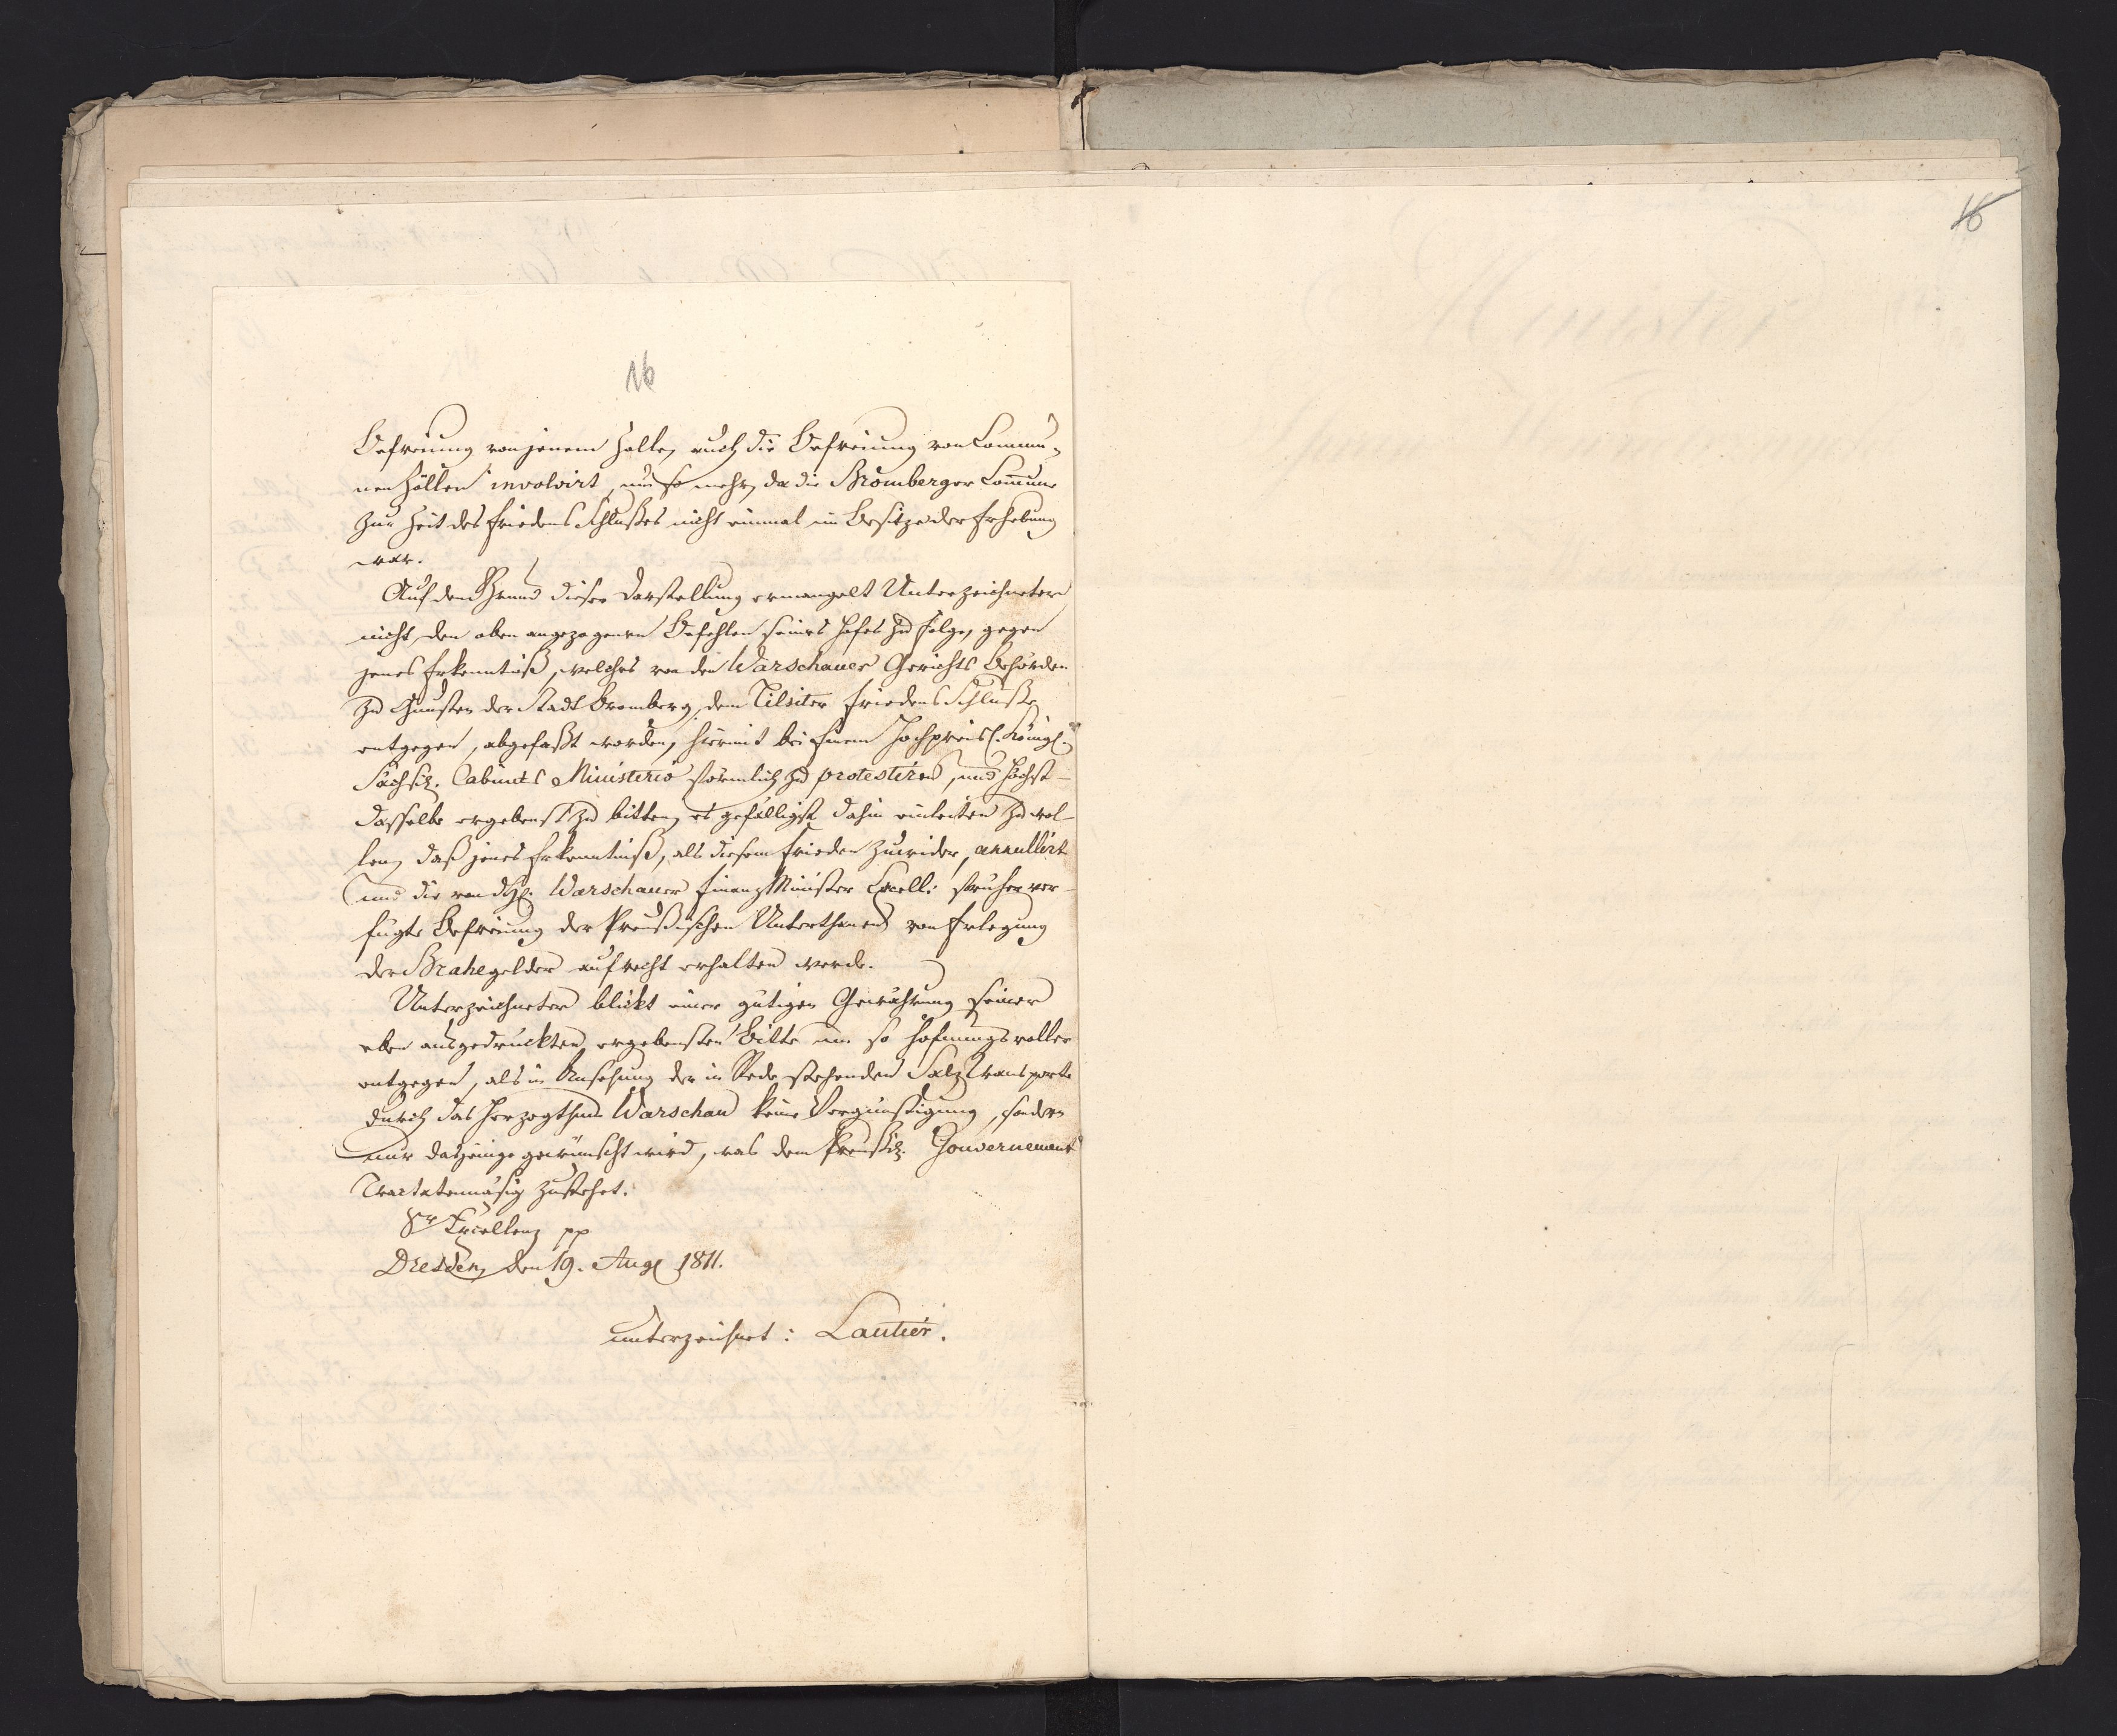 16
16
Befreiung von jenem Zolle, auch die Befreiung von Commu-
nen Zöllen involvirt, um so mehr, da die Bromberger Commune
zur Zeit des Friedens Schlußes nicht einmal im Besitze der Erhebung
war.
Auf den Grund dieser Darstellung ermangelt Unterzeichneter
nicht, den oben angezogenen Befehlen seines Hofes zu Folge, gegen
jenes Erkenntniß, welches von den Warschauer Gerichts Behörden
zu Gunsten der Stadt Bromberg, dem Tilsiter Friedens Schluße
entgegen, abgefaßt worden, hiermit bei Einem Hochpreisl. Königl.
Sächsch. Cabinets Ministerio förmlich zu protestiren, und Höchst-
dasselbe ergebenst zu bitten, es gefälligst dahin einleiten zu wol-
len, daß jenes Erkenntniß, als diesem Frieden zuwider, annullirt
und die von Warschauer Finanz Minister Excell: früher ver-
fügte Befreiung der Preußischen Unterthanen von Erlegung
der Brahegelder aufrecht erhalten werde.
Unterzeichneter blickt einer gütigen Gewährung seiner
eben ausgedruckten ergebensten Bitte um so hofnungsvoller
entgegen, als in Ansehung der in Rede stehenden Salz Transporte
durch das Herzogthum Warschau keine Vergünstigung, sondern
nur dasjenige gewünscht wird, was dem Preußsch. Gouvernement
Tractatenmäsig zustehet.
Sr Excellenz pp
Dresden, den 19. Aug 1811.
unterzeichnet: Lautier.